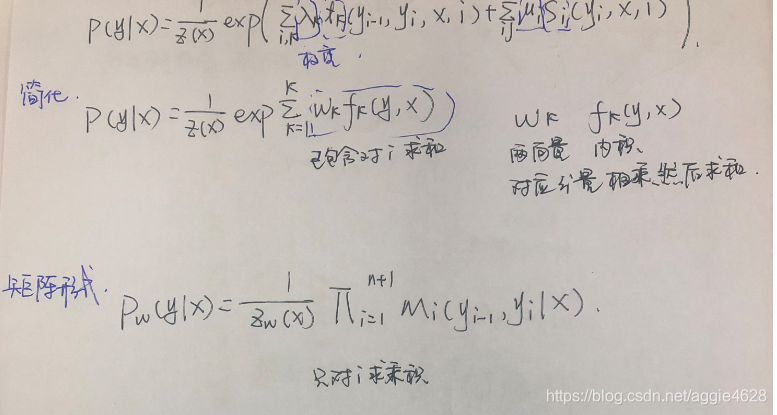 P(y|x) = 1/Z(x) exp( Σ_{i,k} λ_k t_k (y_{i-1}, y_i, x, i) + Σ_{i,j} μ_j S_j (y_i, x, i) ).
简化. P(y|x) = 1/Z(x) exp Σ_{k=1}^{K} w_k f_k(y, x)
已包含对 i 求和
w_k f_k(y, x)
两向量 内积、
对应分量相乘、然后求和.
矩阵形式. P_w(y|x) = 1/Z_w(x) ∏_{i=1}^{n+1} M_i(y_{i-1}, y_i|x).
只对 i 求乘积
https://blog.csdn.net/aggie4628